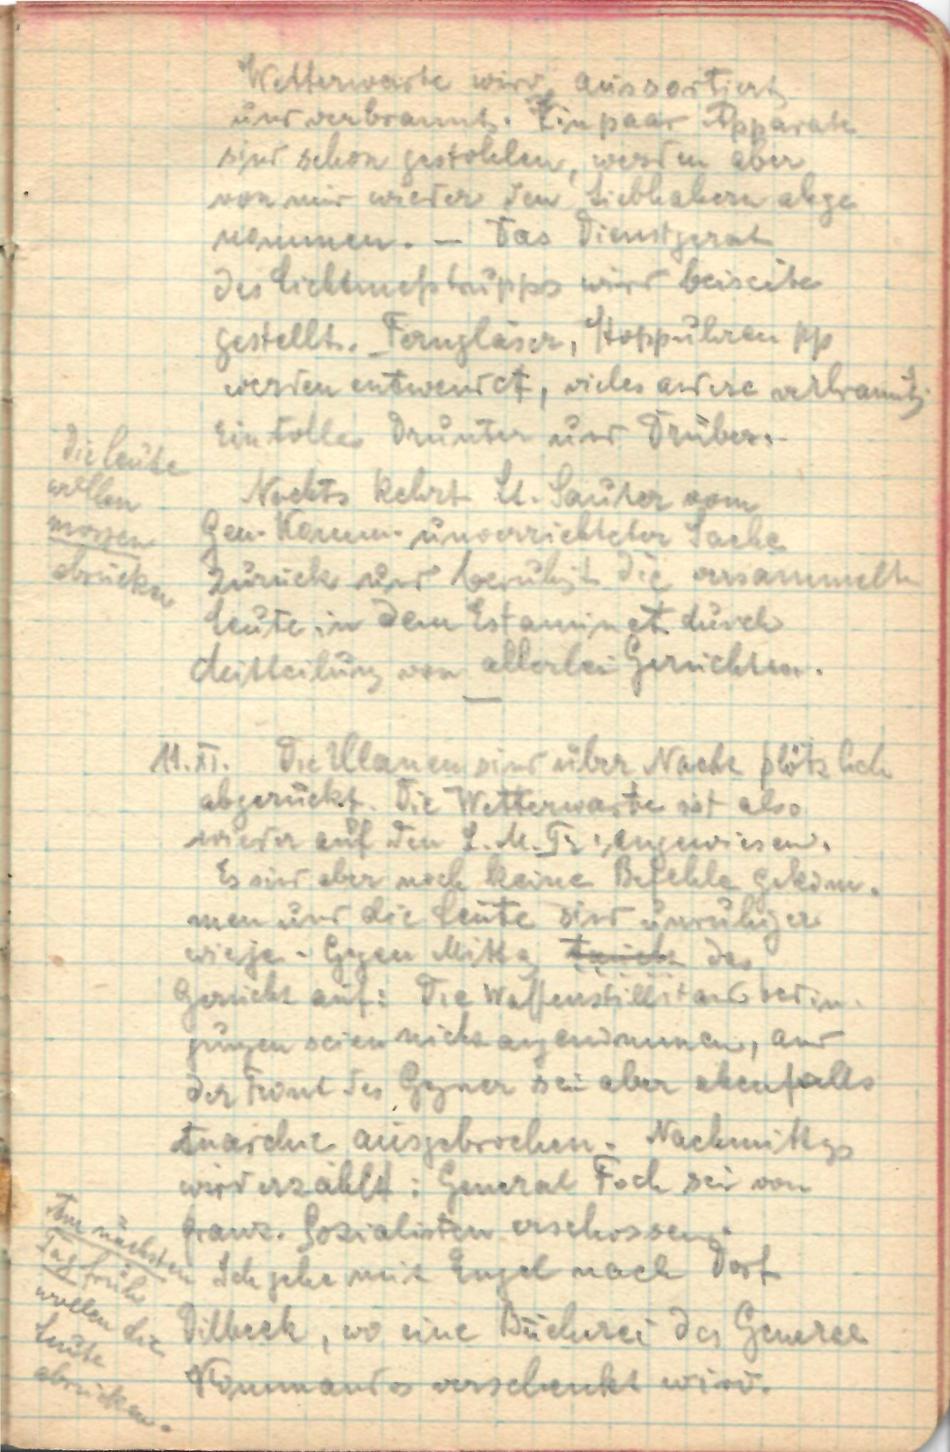 Wetterwarte wird aussortiert
und verbrannt. Ein paar Apparate
sind schon gestohlen, werden aber
von mir wieder den Liebhabern abge
nommen. — Das Dienstgerät
des Lichtmeßtrupps wird beiseite
gestellt. Ferngläser, Stoppuhren pp
werden entwendet, vieles andere verbrannt,
ein tolles Drunter und Drüber.
Die Leute
wollen
morgen
abrücken
Nachts kehrt Lt. Sauter vom
Gen. Komm. unverrichteter Sache
zurück und beruhigt die versammelten
Leute in dem Estaminet durch
Mitteilung von allerlei Gerüchten.
—
11. XI. Die Ulanen sind über Nacht plötzlich
abgerückt. Die Wetterwarte ist also
wieder auf den L. M. Tr. angewiesen.
Es sind aber noch keine Befehle gekom-
men und die Leute sind unruhiger
wie je. Gegen Mittag taucht das
Gerücht auf: Die Waffenstillstandsbedin-
gungen seien nicht angenommen, an
der Front des Gegner sei aber ebenfalls
Anarchie ausgebrochen. Nachmittags
wird erzählt: General Foch sei von
franz. Sozialisten erschossen.
Am nächsten
Tag früh
wollen die
Leute
abrücken.
Ich gehe mit Engel nach Dorf
Dilbeek, wo eine Bücherei des General
Kommandos verschenkt wird.